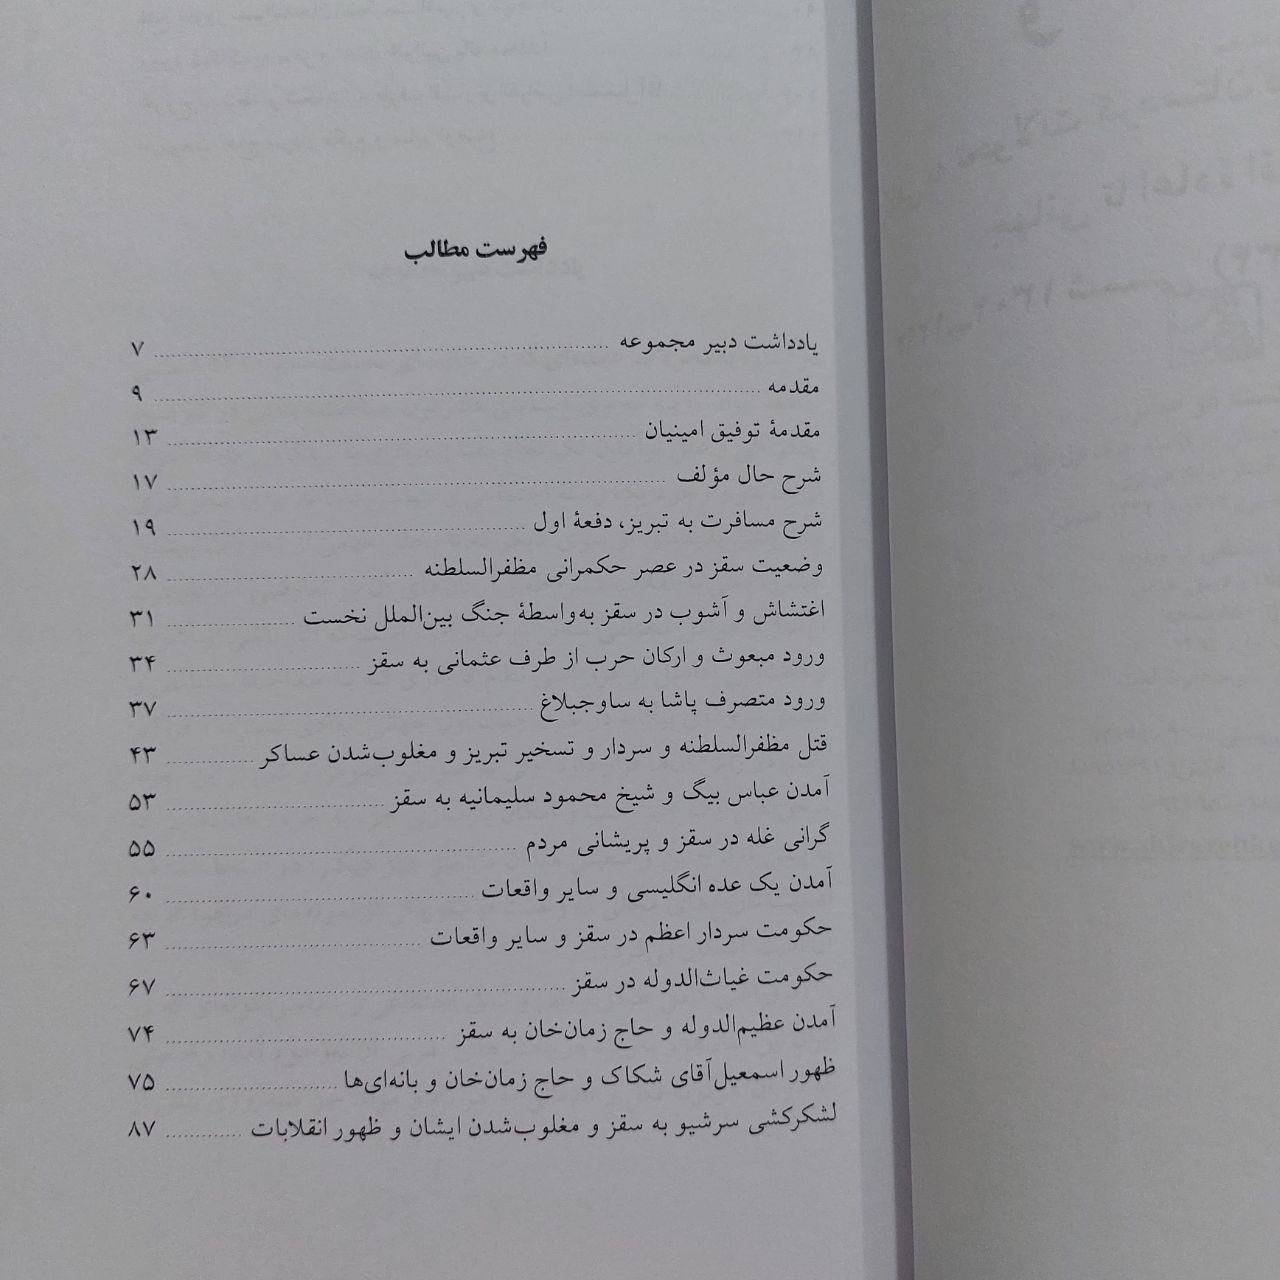 فهرست مطالب
یادداشت دبیر مجموعه ........ ۷
مقدمه ........ ۹
مقدمهٔ توفیق امینیان ........ ۱۳
شرح حال مؤلف ........ ۱۷
شرح مسافرت به تبریز، دفعهٔ اول ........ ۱۹
وضعیت سقز در عصر حکمرانی مظفرالسلطنه ........ ۲۸
اغتشاش و آشوب در سقز به‌واسطهٔ جنگ بین‌الملل نخست ........ ۳۱
ورود مبعوث و ارکان حرب از طرف عثمانی به سقز ........ ۳۴
ورود متصرف پاشا به ساوجبلاغ ........ ۳۷
قتل مظفرالسلطنه و سردار و تسخیر تبریز و مغلوب‌شدن عساکر ........ ۴۳
آمدن عباس بیگ و شیخ محمود سلیمانیه به سقز ........ ۵۳
گرانی غله در سقز و پریشانی مردم ........ ۵۵
آمدن یک عده انگلیسی و سایر واقعات ........ ۶۰
حکومت سردار اعظم در سقز و سایر واقعات ........ ۶۳
حکومت غیاث‌الدوله در سقز ........ ۶۷
آمدن عظیم‌الدوله و حاج زمان‌خان به سقز ........ ۷۴
ظهور اسمعیل‌آقای شکاک و حاج زمان‌خان و بانه‌ای‌ها ........ ۷۵
لشکرکشی سرشیو به سقز و مغلوب‌شدن ایشان و ظهور انقلابات ........ ۸۷